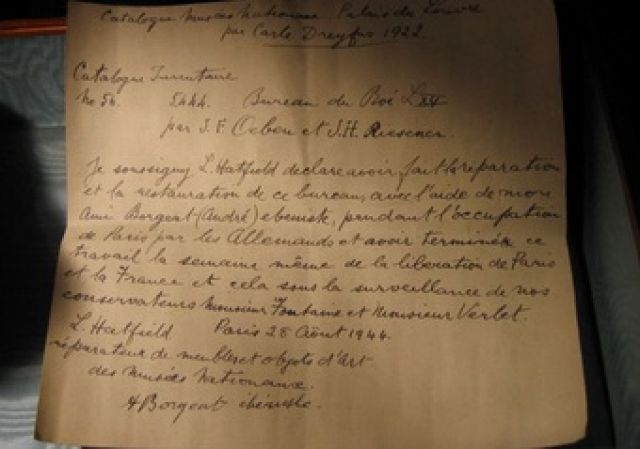 Catalogue Musées Nationaux Palais du Louvre
par Carle Dreyfus 1922.
Catalogue Inventaire
No 54. 5444. Bureau du Roi L XV
par J. F. Oeben et J. H. Riesener.
Je soussigny L. Hatfield declare avoir fait la réparation
et la restauration de ce bureau, avec l'aide de mon
Ami Borgent (André) ebeniste, pendant l'occupation
de Paris par les Allemands et avoir terminér ce
travail la semaine même de la liberation de Paris
et la France et cela sous la surveillance de nos
conservateurs Monsieur Fontaine et Monsieur Verlet.
L. Hatfield Paris 28 Aôut 1944.
réparateur de meubles et objets d'Art
des Musées Nationaux.
A Borgent ibéniste.